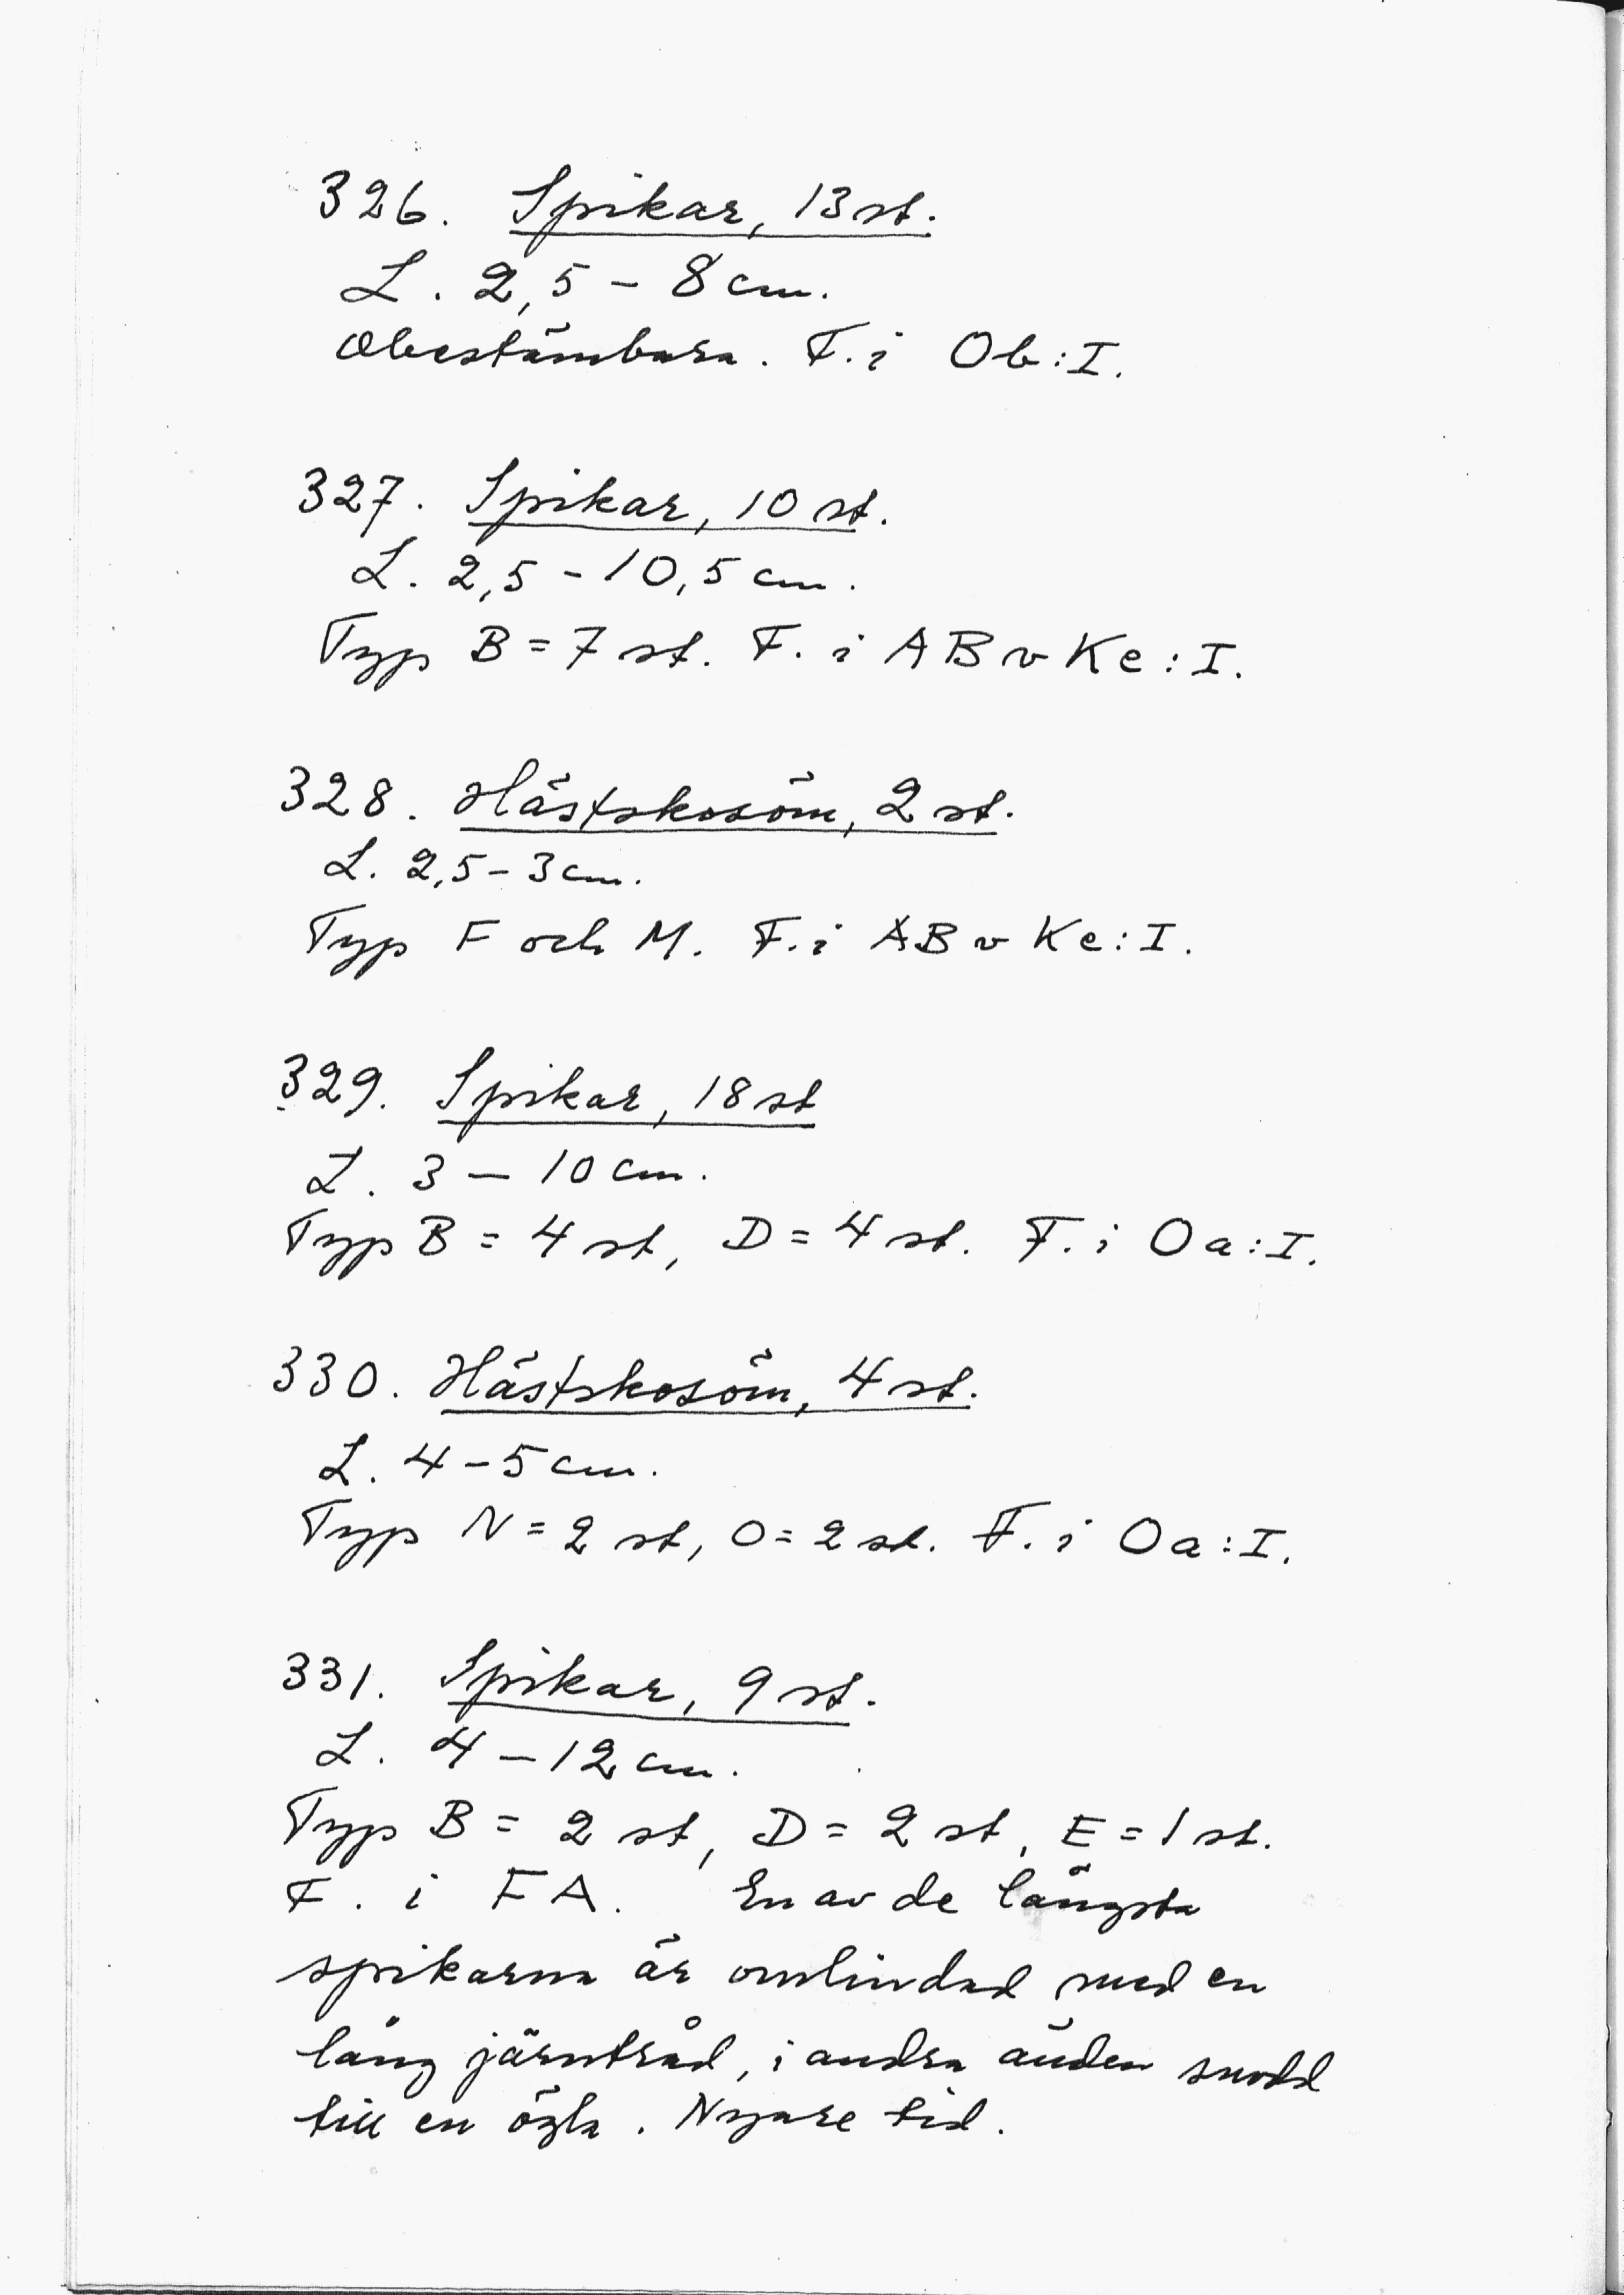 326. Spikar, 13 st.
L. 2,5 - 8 cm.
Obestämbara. F. i Ob:I.
327. Spikar, 10 st.
L. 2,5 - 10,5 cm.
Typ B = 7 st. F. i ABvKe:I.
328. Hästskosöm, 2 st.
L. 2,5 - 3 cm.
Typ F och M. F. i ABvKe:I.
329. Spikar, 18 st
L. 3 - 10 cm.
Typ B = 4 st, D = 4 st. F. i Oa:I.
330. Hästskosöm, 4 st.
L. 4 - 5 cm.
Typ N = 2 st, O = 2 st. F. i Oa:I.
331. Spikar, 9 st.
L. 4 - 12 cm.
Typ B = 2 st, D = 2 st, E = 1 st.
F. i FA. En av de längsta
spikarna är omlindad med en
lång järntråd, i andra änden snodd
till en ögla. Nyare tid.